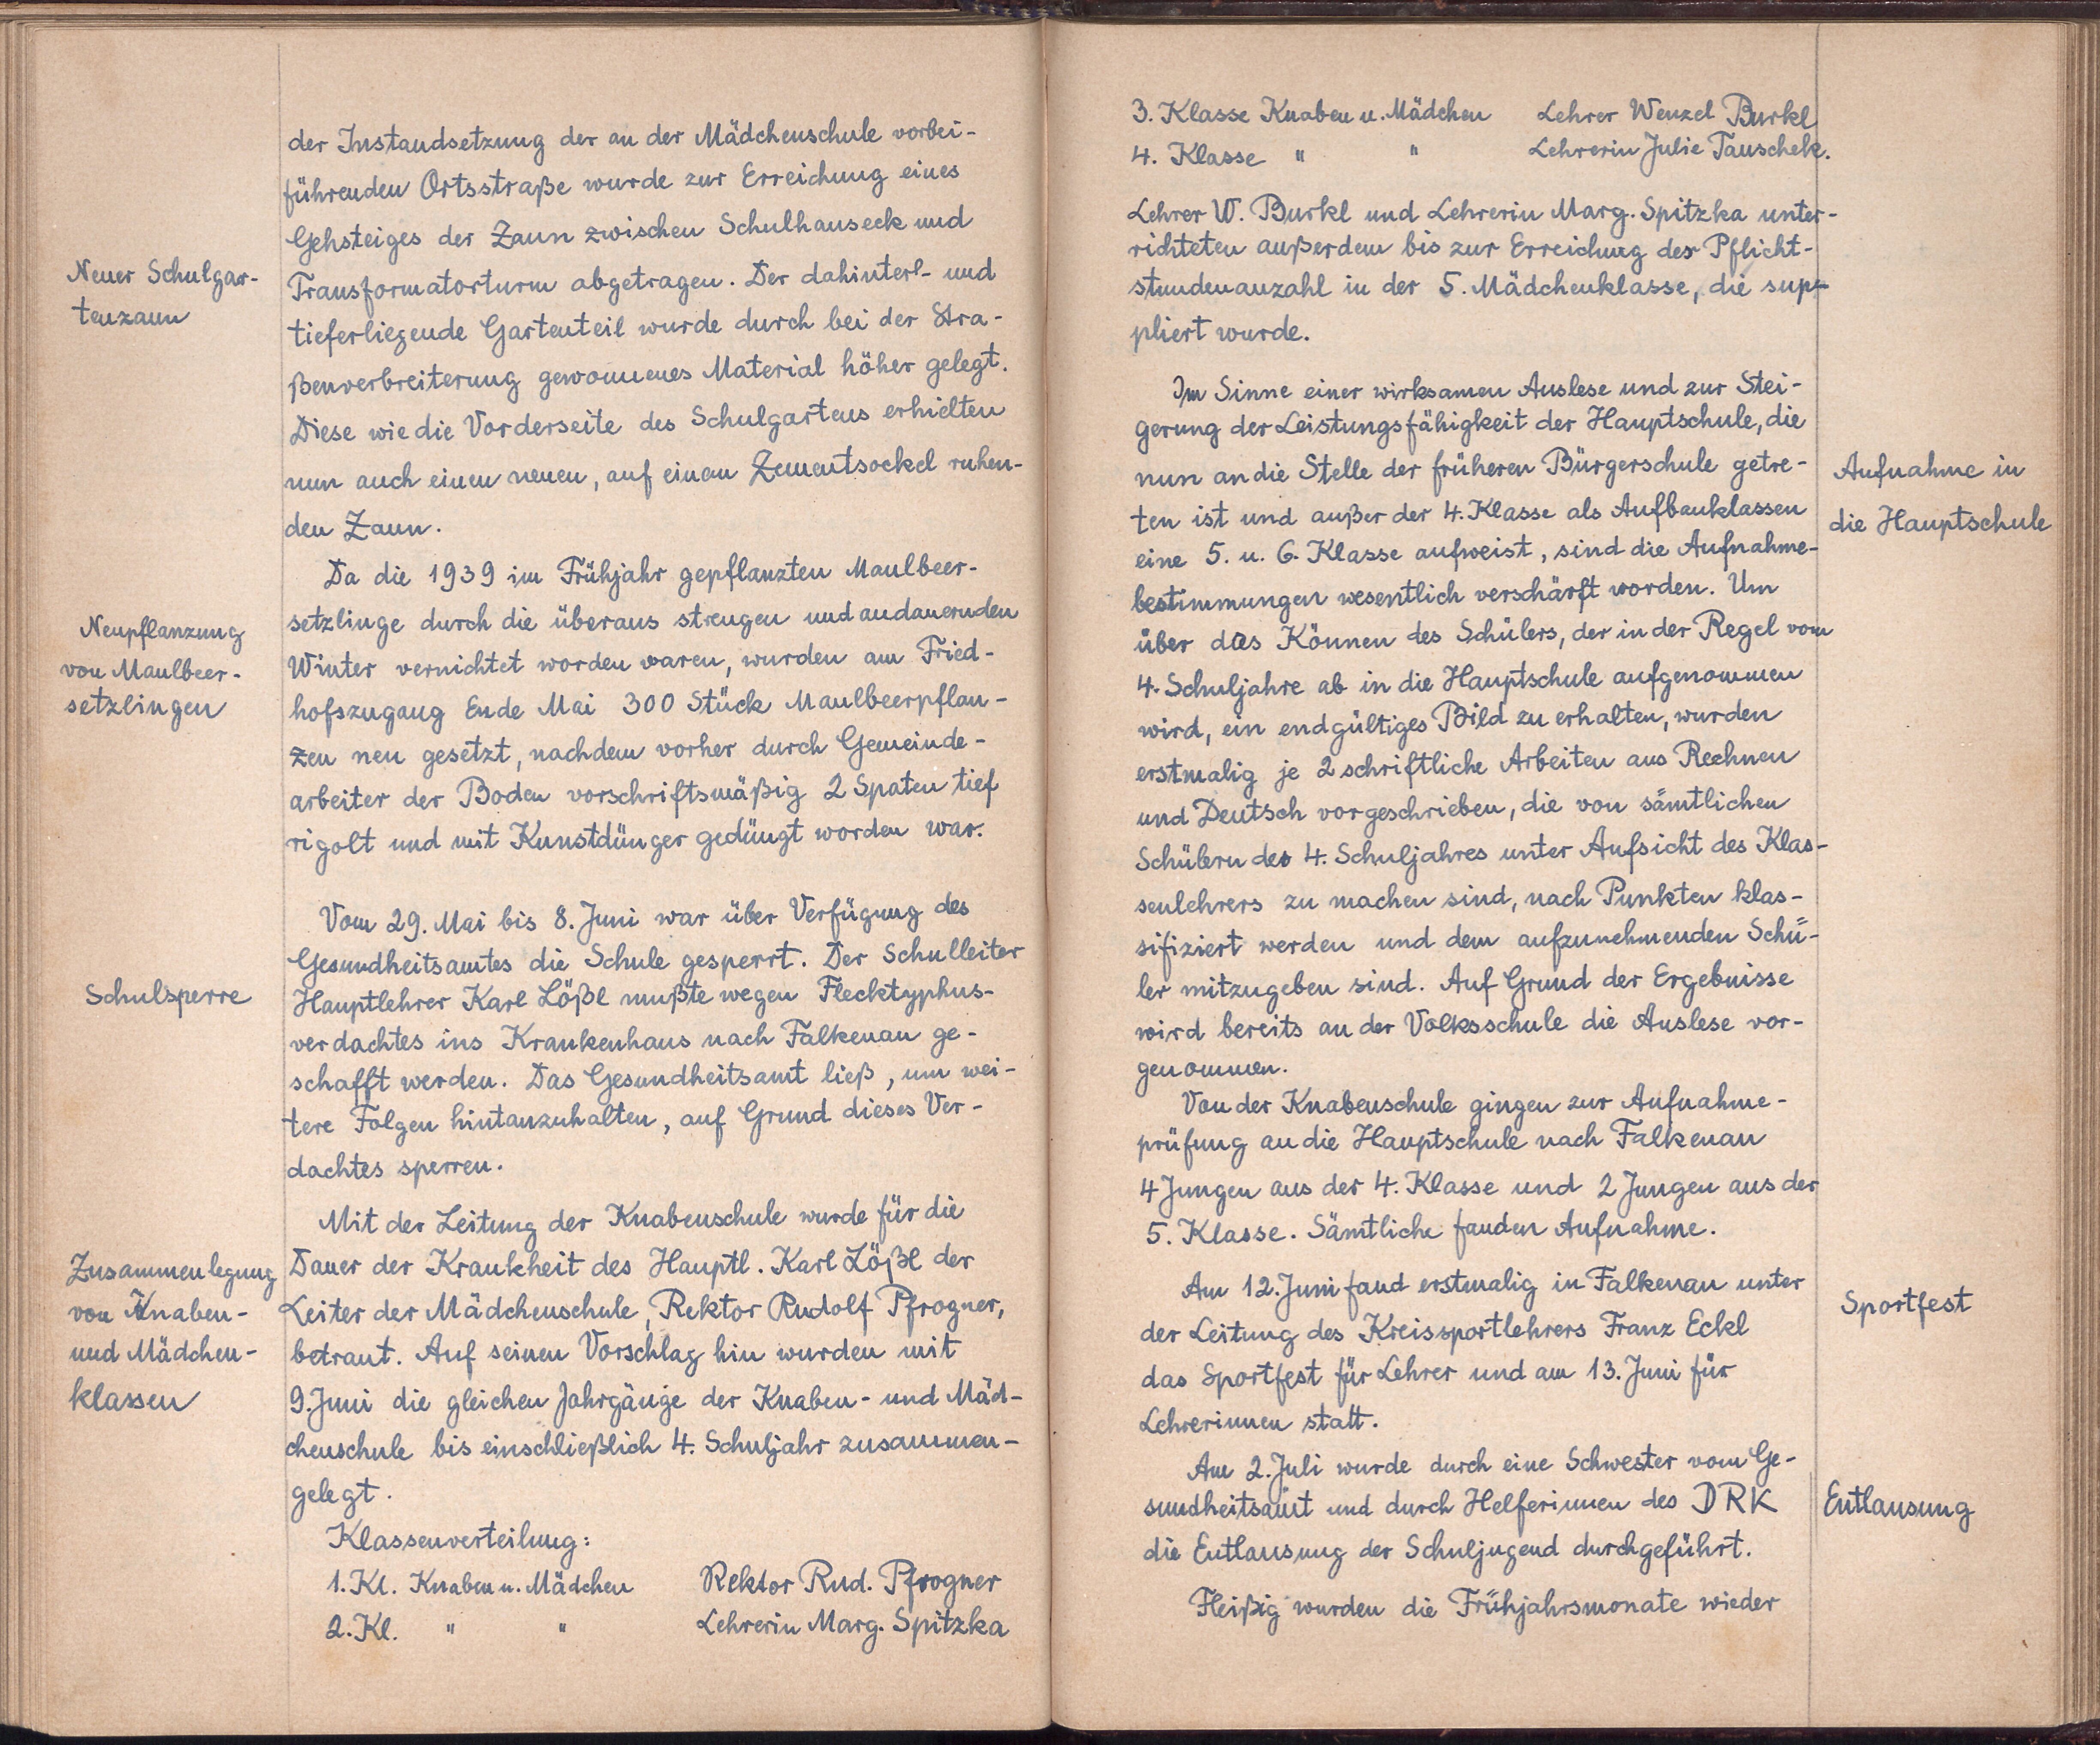 der Instandsetzung der an der Mädchenschule vorbei-
führenden Ortsstraße wurde zur Erreichung eines
Gehsteiges der Zaun zwischen Schulhauseck und
Neuer Schulgar-
tenzaun
Transformatorturm abgetragen. Der dahinterl- und
tieferliegende Gartenteil wurde durch bei der Stra-
ßenverbreiterung gewonnenes Material höher gelegt.
Diese wie die Vorderseite des Schulgartens erhielten
nun auch einen neuen, auf einem Zementsockel ruhen-
den Zaun.
Da die 1939 im Frühjahr gepflanzten Maulbeer-
Neupflanzung
von Maulbeer-
setzlingen
setzlinge durch die überaus strengen und andauernden
Winter vernichtet worden waren, wurden am Fried-
hofszugang Ende Mai 300 Stück Maulbeerpflan-
zen neu gesetzt, nachdem vorher durch Gemeinde-
arbeiter der Boden vorschriftsmäßig 2 Spaten tief
rigolt und mit Kunstdünger gedüngt worden war.
Vom 29. Mai bis 8. Juni war über Verfügung des
Gesundheitsamtes die Schule gesperrt. Der Schulleiter
Schulsperre
Hauptlehrer Karl Lößl mußte wegen Flecktyphus-
verdachtes ins Krankenhaus nach Falkenau ge-
schafft werden. Das Gesundheitsamt ließ, um wei-
tere Folgen hintanzuhalten, auf Grund dieses Ver-
dachtes sperren.
Mit der Leitung der Knabenschule wurde für die
Zusammenlegung
von Knaben-
und Mädchen-
klassen
Dauer der Krankheit des Hauptl. Karl Lößl der
Leiter der Mädchenschule, Rektor Rudolf Pfrogner,
betraut. Auf seinen Vorschlag hin wurden mit
9. Juni die gleichen Jahrgänge der Knaben- und Mäd-
chenschule bis einschließlich 4. Schuljahr zusammen-
gelegt.
Klassenverteilung:
1. Kl. Knaben u. Mädchen Rektor Rud. Pfrogner
2. Kl. " " Lehrerin Marg. Spitzka
3. Klasse Knaben u. Mädchen Lehrer Wenzel Burkl
4. Klasse " " Lehrerin Julie Tauschek.
Lehrer W. Burkl und Lehrerin Marg. Spitzka unter-
richteten außerdem bis zur Erreichung der Pflicht-
stundenanzahl in der 5. Mädchenklasse, die sup-
pliert wurde.
Im Sinne einer wirksamen Auslese und zur Stei-
gerung der Leistungsfähigkeit der Hauptschule, die
nun an die Stelle der früheren Bürgerschule getre-
Aufnahme in
die Hauptschule
ten ist und außer der 4. Klasse als Aufbauklassen
eine 5. u. 6. Klasse aufweist, sind die Aufnahme-
bestimmungen wesentlich verschärft worden. Um
über das Können des Schülers, der in der Regel vom
4. Schuljahre ab in die Hauptschule aufgenommen
wird, ein endgültiges Bild zu erhalten, wurden
erstmalig je 2 schriftliche Arbeiten aus Rechnen
und Deutsch vorgeschrieben, die von sämtlichen
Schülern des 4. Schuljahres unter Aufsicht des Klas-
senlehrers zu machen sind, nach Punkten klas-
sifiziert werden und dem aufzunehmenden Schü-
ler mitzugeben sind. Auf Grund der Ergebnisse
wird bereits an der Volksschule die Auslese vor-
genommen.
Von der Knabenschule gingen zur Aufnahme-
prüfung an die Hauptschule nach Falkenau
4 Jungen aus der 4. Klasse und 2 Jungen aus der
5. Klasse. Sämtliche fanden Aufnahme.
Am 12. Juni fand erstmalig in Falkenau unter
Sportfest
der Leitung des Kreissportlehrers Franz Eckl
das Sportfest für Lehrer und am 13. Juni für
Lehrerinnen statt.
Am 2. Juli wurde durch eine Schwester vom Ge-
sundheitsamt und durch Helferinnen des DRK
Entlausung
die Entlausung der Schuljugend durchgeführt.
Fleißig wurden die Frühjahrsmonate wieder